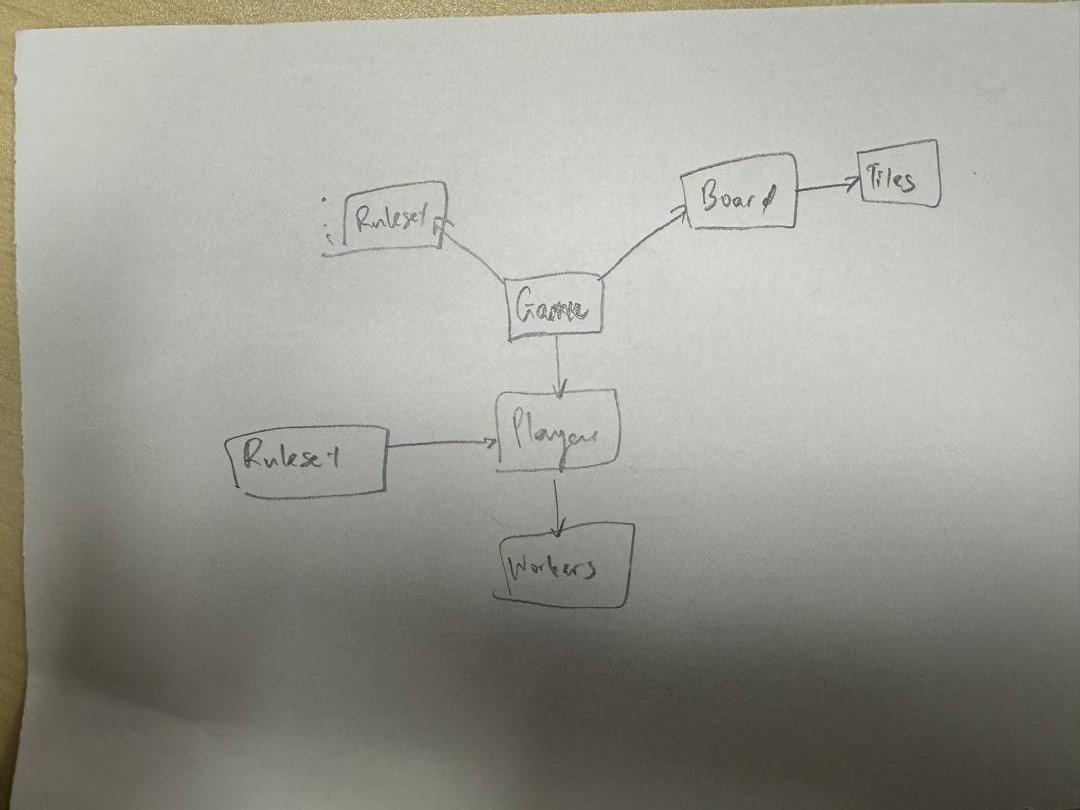 Ruleset
Board
Tiles
Game
Players
Ruleset
Workers